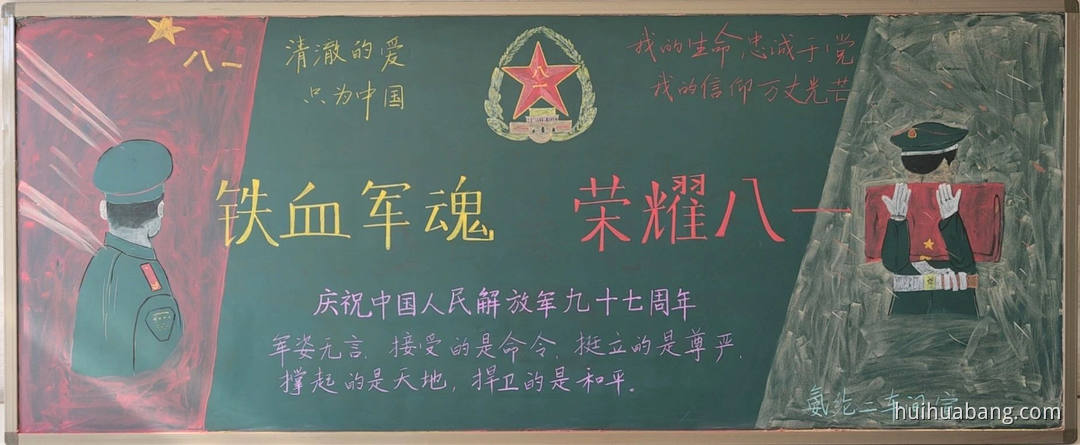 八一
清澈的爱
只为中国
八一
我的生命,忠诚于党
我的信仰万丈光芒
铁血军魂 荣耀八一
庆祝中国人民解放军九十七周年
军姿无言,接受的是命令,挺立的是尊严,
撑起的是天地,捍卫的是和平。
氨纶二车间宣
huihuabang.com